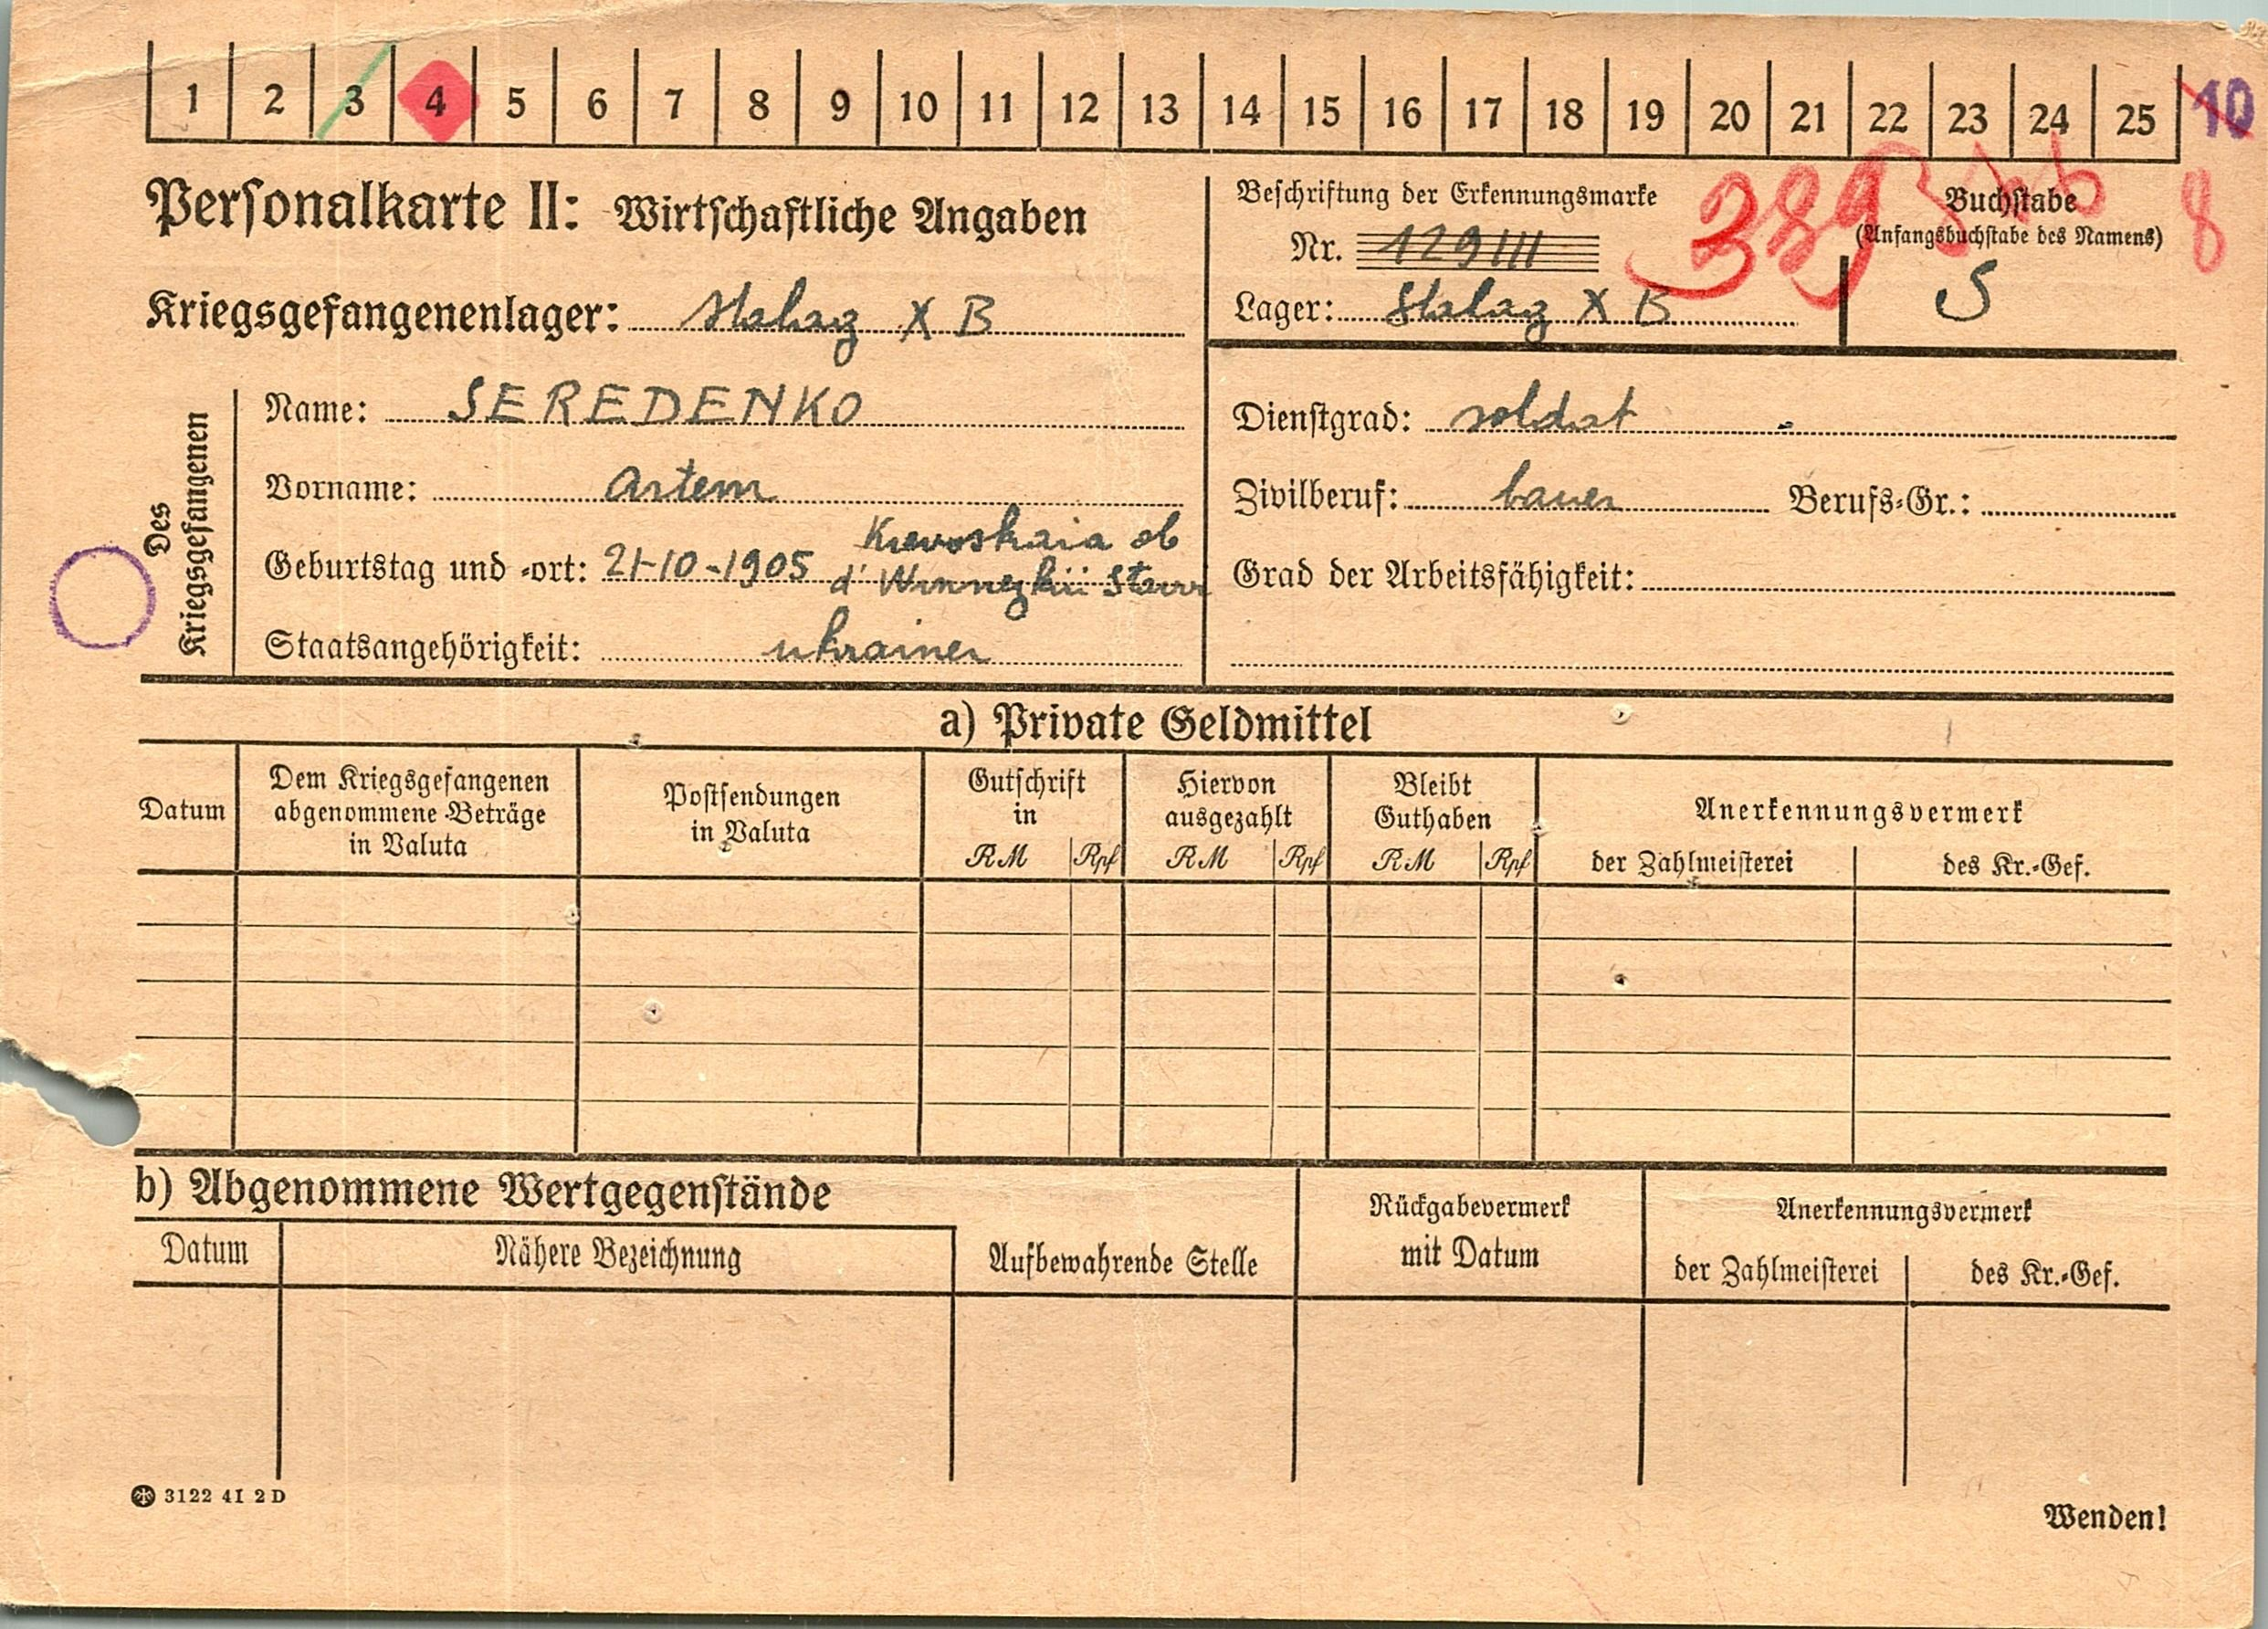 1 2 3 4 5 6 7 8 9 10 11 12 13 14 15 16 17 18 19 20 21 22 23 24 25 10
Personalkarte II: Wirtschaftliche Angaben
Beschriftung der Erkennungsmarke
Nr. 129111
389
8
Buchstabe
(Anfangsbuchstabe des Namens)
S
Kriegsgefangenenlager: Stalag X B
Lager: Stalag X B
Des Kriegsgefangenen
Name: SEREDENKO
Dienstgrad: soldat
Vorname: Artem
Zivilberuf: bauer Berufs-Gr.:
Geburtstag und -ort: 21-10-1905 ob
d'
Grad der Arbeitsfähigkeit:
Staatsangehörigkeit: ukrainer
a) Private Geldmittel
Datum
Dem Kriegsgefangenen
abgenommene Beträge
in Valuta
Postsendungen
in Valuta
Gutschrift
in
RM Rpf
Hiervon
ausgezahlt
RM Rpf
Bleibt
Guthaben
RM Rpf
Anerkennungsvermerk
der Zahlmeisterei des Kr.-Gef.
b) Abgenommene Wertgegenstände
Datum
Nähere Bezeichnung
Aufbewahrende Stelle
Rückgabevermerk
mit Datum
Anerkennungsvermerk
der Zahlmeisterei des Kr.-Gef.
3122 41 2 D
Wenden!